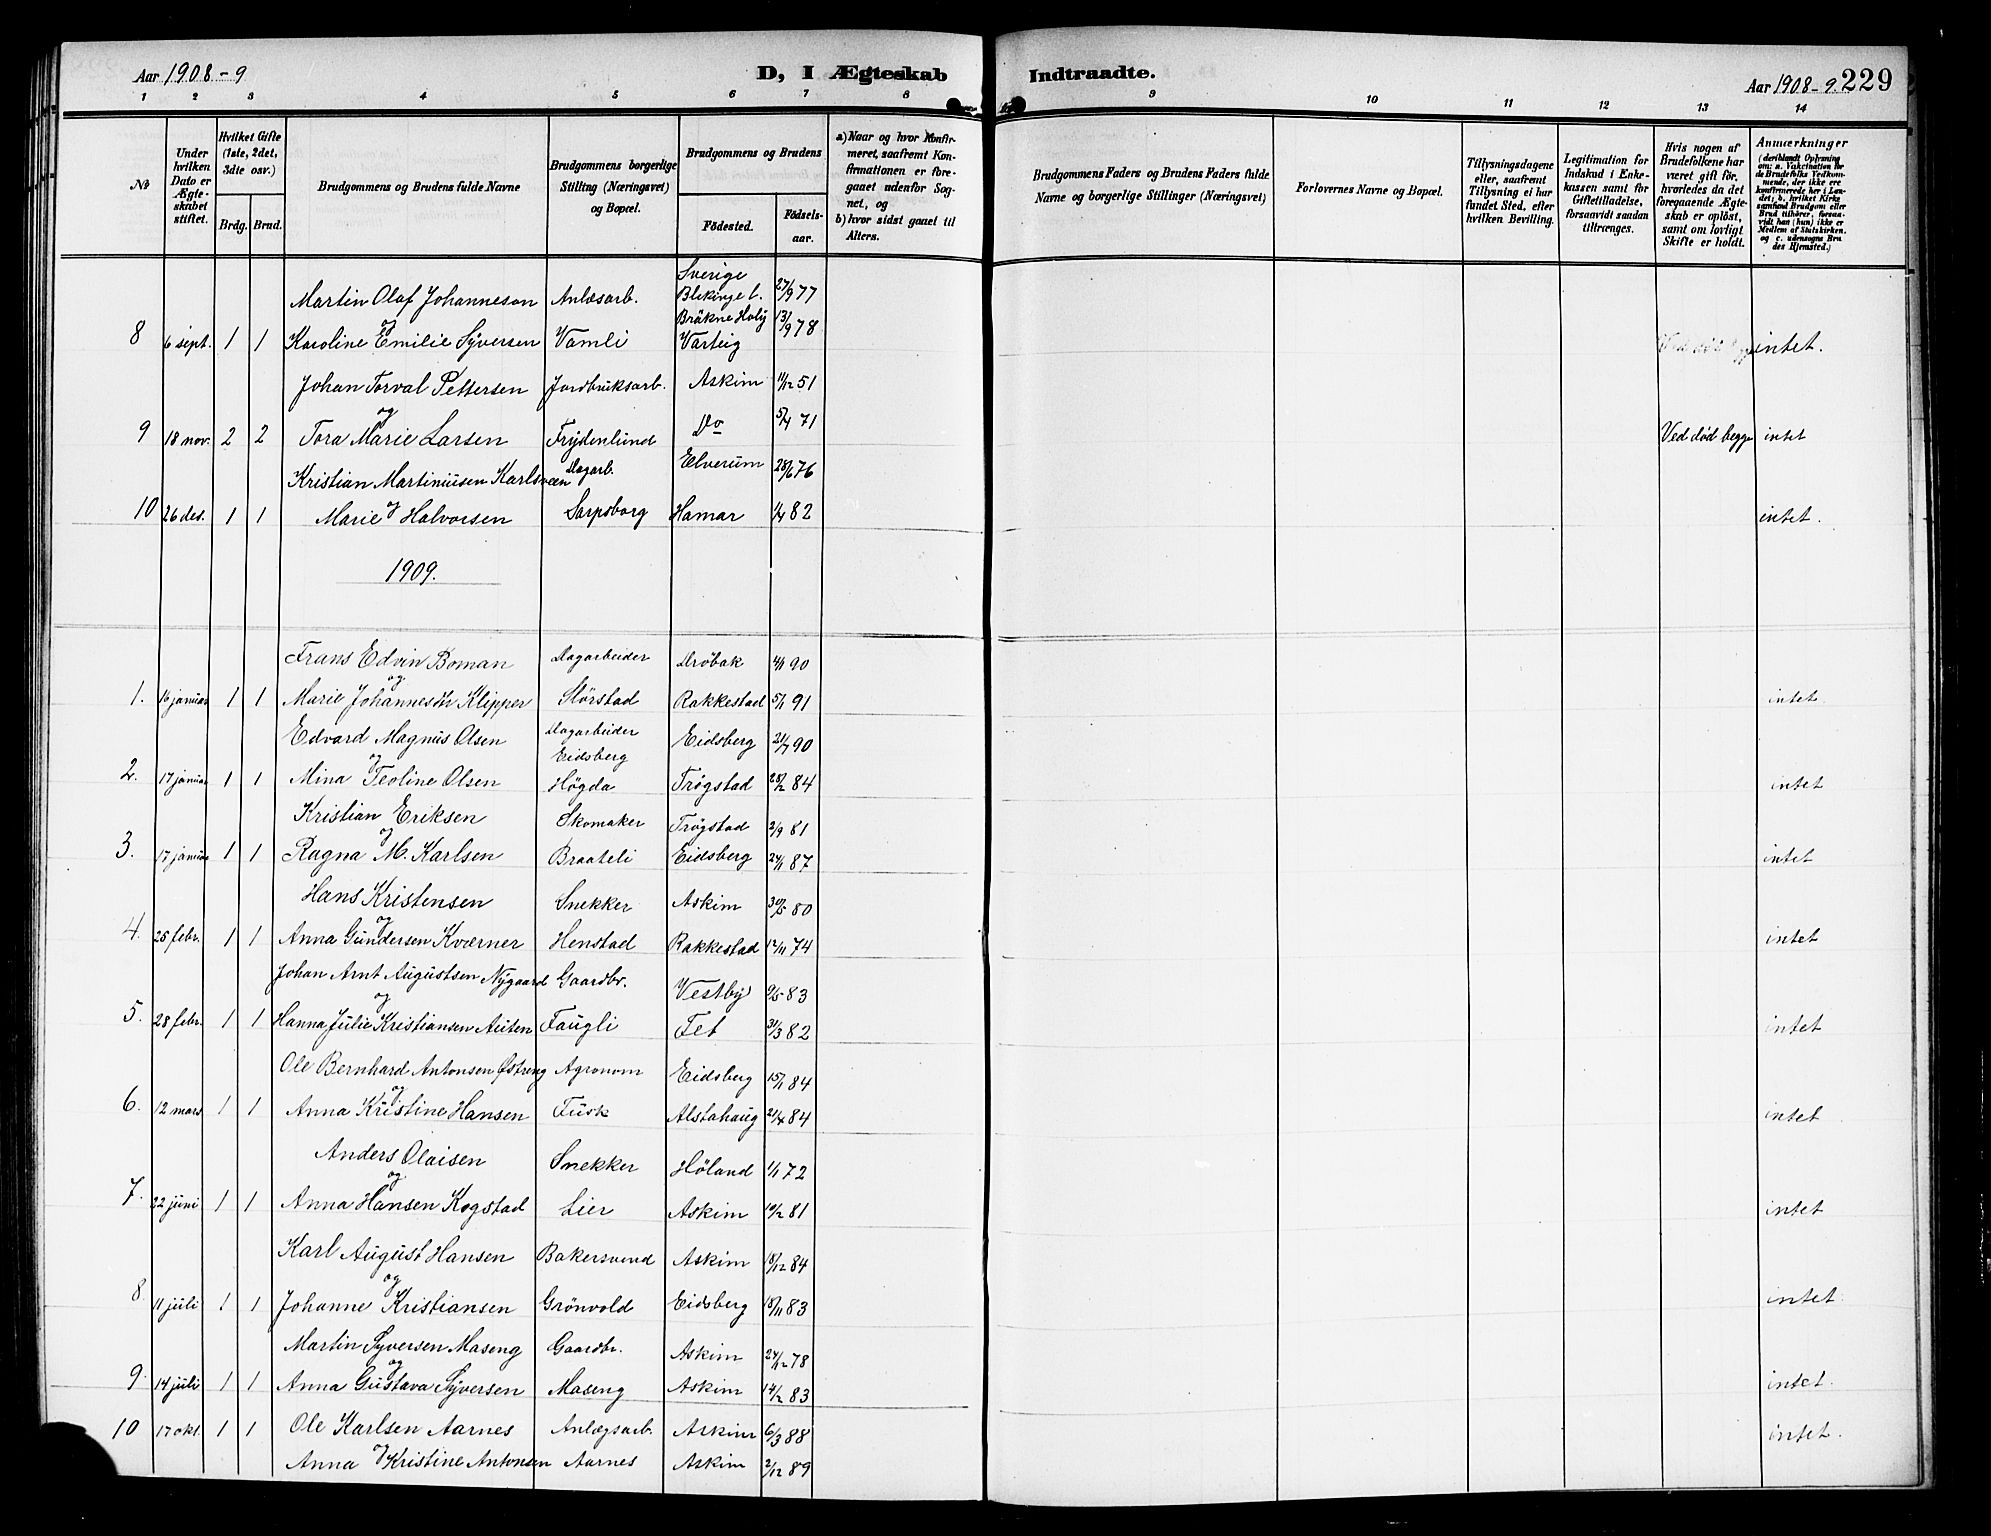 Aar 1908-9
D, I Ægteskab Indtraadte.
Aar 1908-9. 229
1 2 3 4 5 6 7 8 9 10 11 12 13 14
No
Under hvilken Dato er Ægteskabet stiftet.
Hvilket Gifte (1ste, 2det, 3die osv.)
Brdg. Brud.
Brudgommens og Brudens fulde Navne
Brudgommens borgerlige Stilling (Næringsvei) og Bopæl.
Brudgommens og Brudens
Fødested. Fødselsaar.
a) Naar og hvor Konfirmeret, saafremt Konfirmationen er foregaaet udenfor Sognet, og
b) hvor sidst gaaet til Alters.
Brudgommens Faders og Brudens Faders fulde Navne og borgerlige Stillinger (Næringsvei)
Forlovernes Navne og Bopæl.
Tillysningsdagene eller, saafremt Tillysning ei har fundet Sted, efter hvilken Bevilling.
Legitimation for Indskud i Enkekassen samt for Giftetilladelse, forsaavidt saadan tiltrænges.
Hvis nogen af Brudefolkene har været gift før, hvorledes da det foregaaende Ægteskab er opløst, samt om lovligt Skifte er holdt.
Anmærkninger
(deriblandt Oplysning om: a. Vakcination for de Brudefolks Vedkommende, der ikke ere konfirmerede her i Landet; b. hvilket Kirkesamfund Brudgom eller Brud tilhører, forsaavidt han (hun) ikke er Medlem af Statskirken. og c. udensogns Brudes Hjemsted.)
Martin Olaf Johanneson Anlæsarb. Sverige Blekinge l. Bräkne Hoby 27/9 77
og
8 6 sept. 1 1 Karoline Emilie Syversen Vamli Varteig 13/9 78 intet.
Johan Torval Pettersen Jordbruksarb. Askim 11/12 51
og
9 18 nov. 2 2 Tora Marie Larsen Frydenlund Do 5/4 71 Ved død begge intet
Kristian Martiniusen Karlsveen Dagarb. Elverum 28/6 76
og
10 26 des. 1 1 Marie Halvorsen Sarpsborg Hamar 1/4 82 intet.
1909.
Frans Edvin Boman Dagarbeider Drøbak 4/1 90
og
1. 16 januar 1 1 Marie Johannesdtr Klipper Størstad Rakkestad 5/1 91 intet
Edvard Magnus Olsen Dagarbeider Eidsberg Eidsberg 21/7 90
og
2. 17 januar 1 1 Mina Teoline Olsen Høgda Trøgstad 28/2 84 intet
Kristian Eriksen Skomaker Trøgstad 2/9 81
og
3. 17 januar 1 1 Ragna M. Karlsen Braateli Eidsberg 24/1 87 intet
Hans Kristensen Snekker Askim 30/5 80
og
4. 25 febr. 1 1 Anna Gundersen Kværner Henstad Rakkestad 12/11 74 intet
Johan Arnt Augustsen Nygaard Gaardbr. Vestby 9/5 83
og
5. 28 febr. 1 1 Hanna Julie Kristiansen Auten Faugli Fet 31/3 82 intet
Ole Bernhard Antonsen Østreng Agronom Eidsberg 15/1 84
og
6. 12 mars 1 1 Anna Kristine Hansen Fusk Alstahaug 21/4 84 intet
Anders Olaisen Snekker Høland 1/1 72
og
7. 22 juni 1 1 Anna Hansen Kogstad Lier Askim 19/2 81 intet
Karl August Hansen Bakersvend Askim 18/12 84
og
8. 11 juli 1 1 Johanne Kristiansen Grönvold Eidsberg 18/11 83 intet
Martin Syversen Maseng Gaardbr. Askim 24/12 78
og
9. 14 juli 1 1 Anna Gustava Syversen Maseng Askim 14/2 83 intet.
10 17 okt. 1 1 Ole Karlsen Aarnes Anlægsarb. Askim 6/3 88 intet.
og
Anna Kristine Antonsen Aarnes Askim 2/12 89